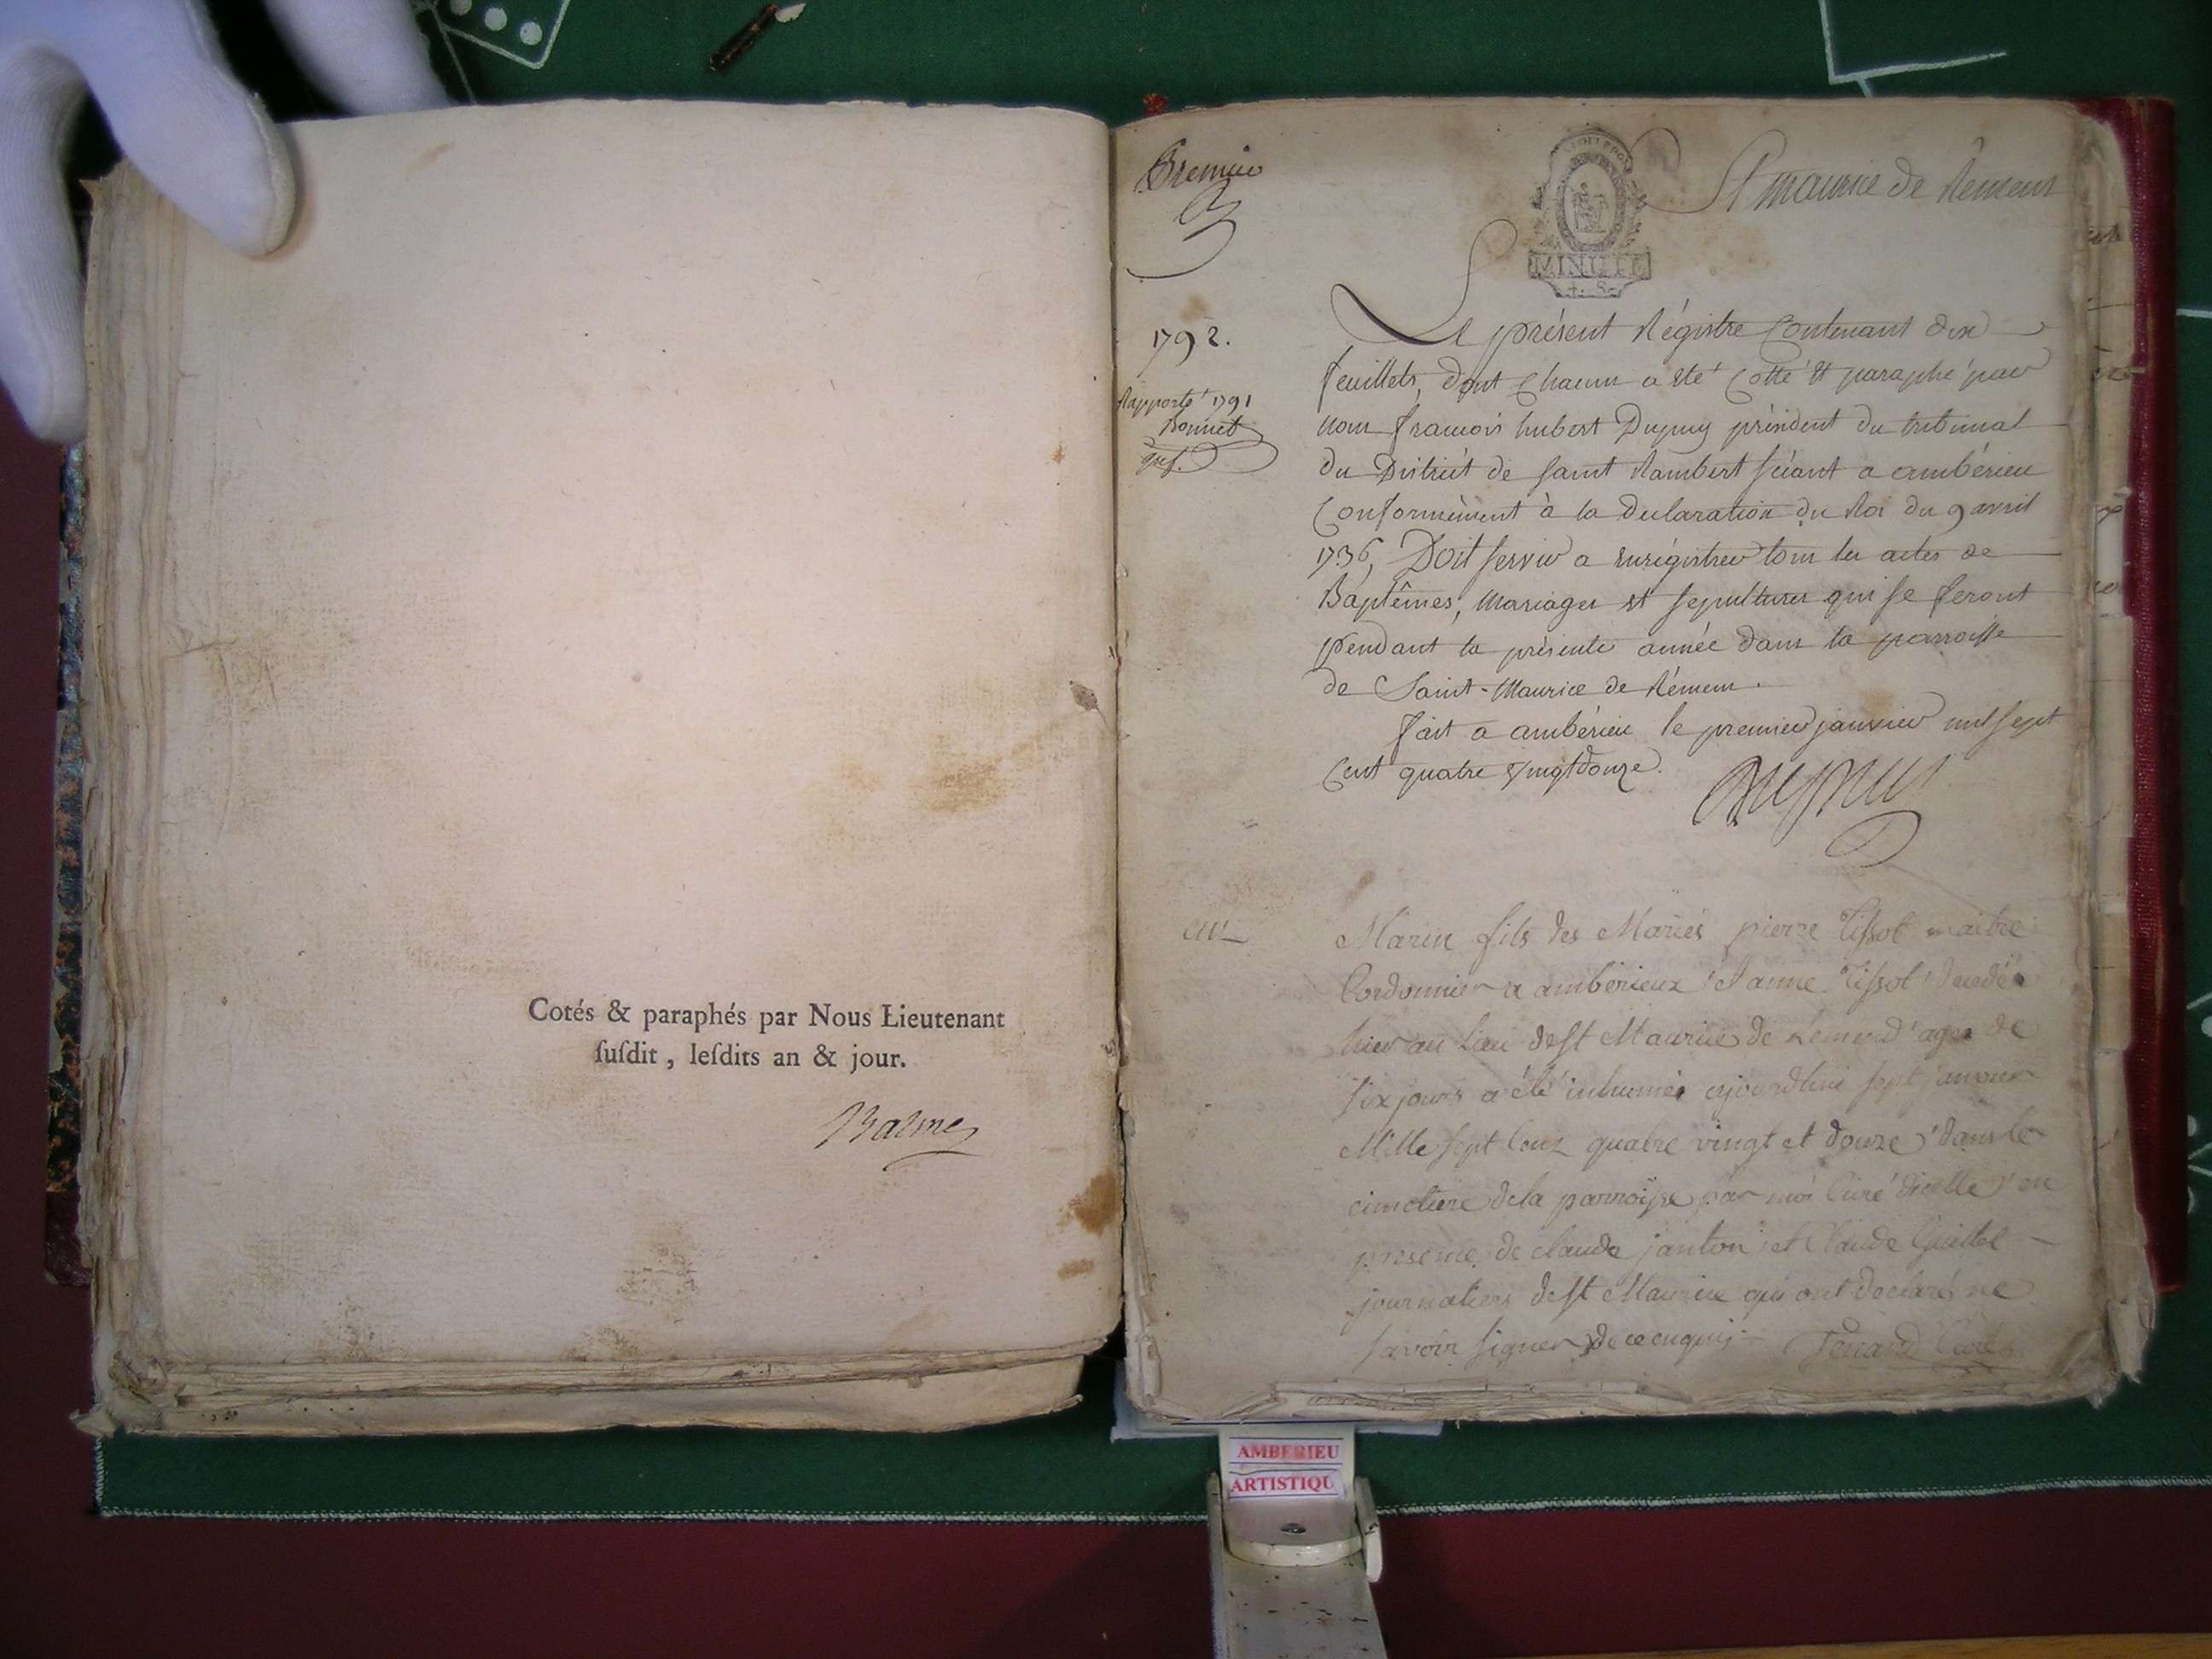 Cotés & paraphés par Nous Lieutenant
ſuſdit, leſdits an & jour.
Balme
Premier
St maurice de Remens
MINUTE
4. S.
1792.
Rapporté 1791
Bonnet
gref.
Le présent Régistre Contenant dix
feuillets, dont Chacun a eté Cotté et paraphé par
nous francois hubert Dupuy président du tribunal
du District de saint Rambert séant a ambérieu
Conformément à la Declaration du Roi du 9 avril
1736, Doit servir a enrégistrer tous les actes de
Baptêmes, Mariages et sepultures qui se feront
pendant la présente année dans la parroisse
de Saint-Maurice de Rémens.
fait a ambérieu le premier janvier mil sept
Cent quatre vingt douze.
Dupuy
Marin fils des Mariés pierre Tissot maitre
Cordonnier a amberieux et anne Tissot decedé
hier au lieu de st Maurice de Remend age de
six jours a été inhumé ajourdhui sept janvier
Mille sept Cent quatre vingt et douze dans le
cimetiere dela parroisse par moi Curé dicelle en
presence de claude janton et Claude Guillet
journaliers de st Maurice qui ont declaré ne
savoir signer de ce enquis Curé
AMBERIEU
ARTISTIQU